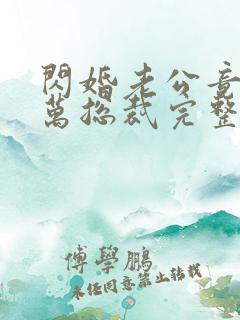 閃婚老公竟
萬總裁完整
傅學鵬
未經同意禁止轉載